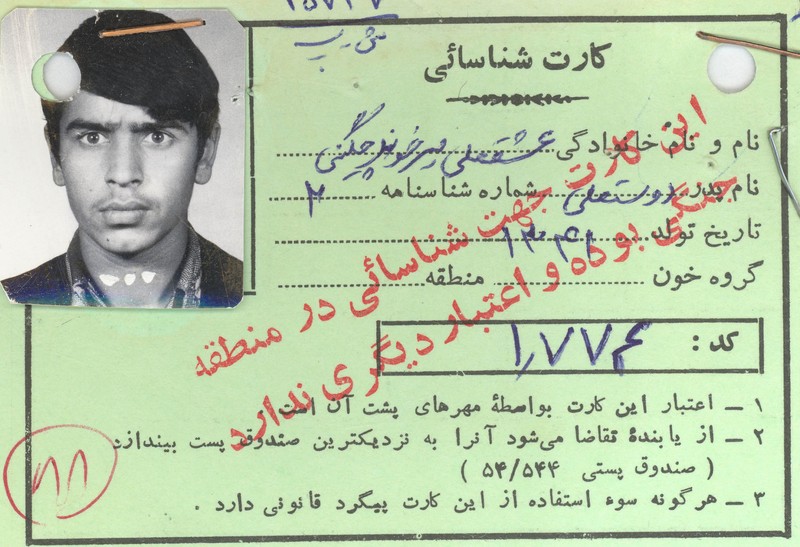 کارت شناسائی
نام و نام خانوادگی عشقعلی میرآخوند چگنی
نام پدر دوستعلی شماره شناسنامه ۲
تاریخ تولد
گروه خون منطقه
کد : ۱٫۷۷۴
۱ - اعتبار این کارت بواسطهٔ مهرهای پشت آن است
۲ - از یابندهٔ تقاضا می‌شود آنرا به نزدیکترین صندوق پست بیندازد
( صندوق پستی ۵۴/۵۴۴ )
۳ - هرگونه سوء استفاده از این کارت پیگرد قانونی دارد .
این کارت جهت شناسائی در منطقه
جنگی بوده و اعتبار دیگری ندارد